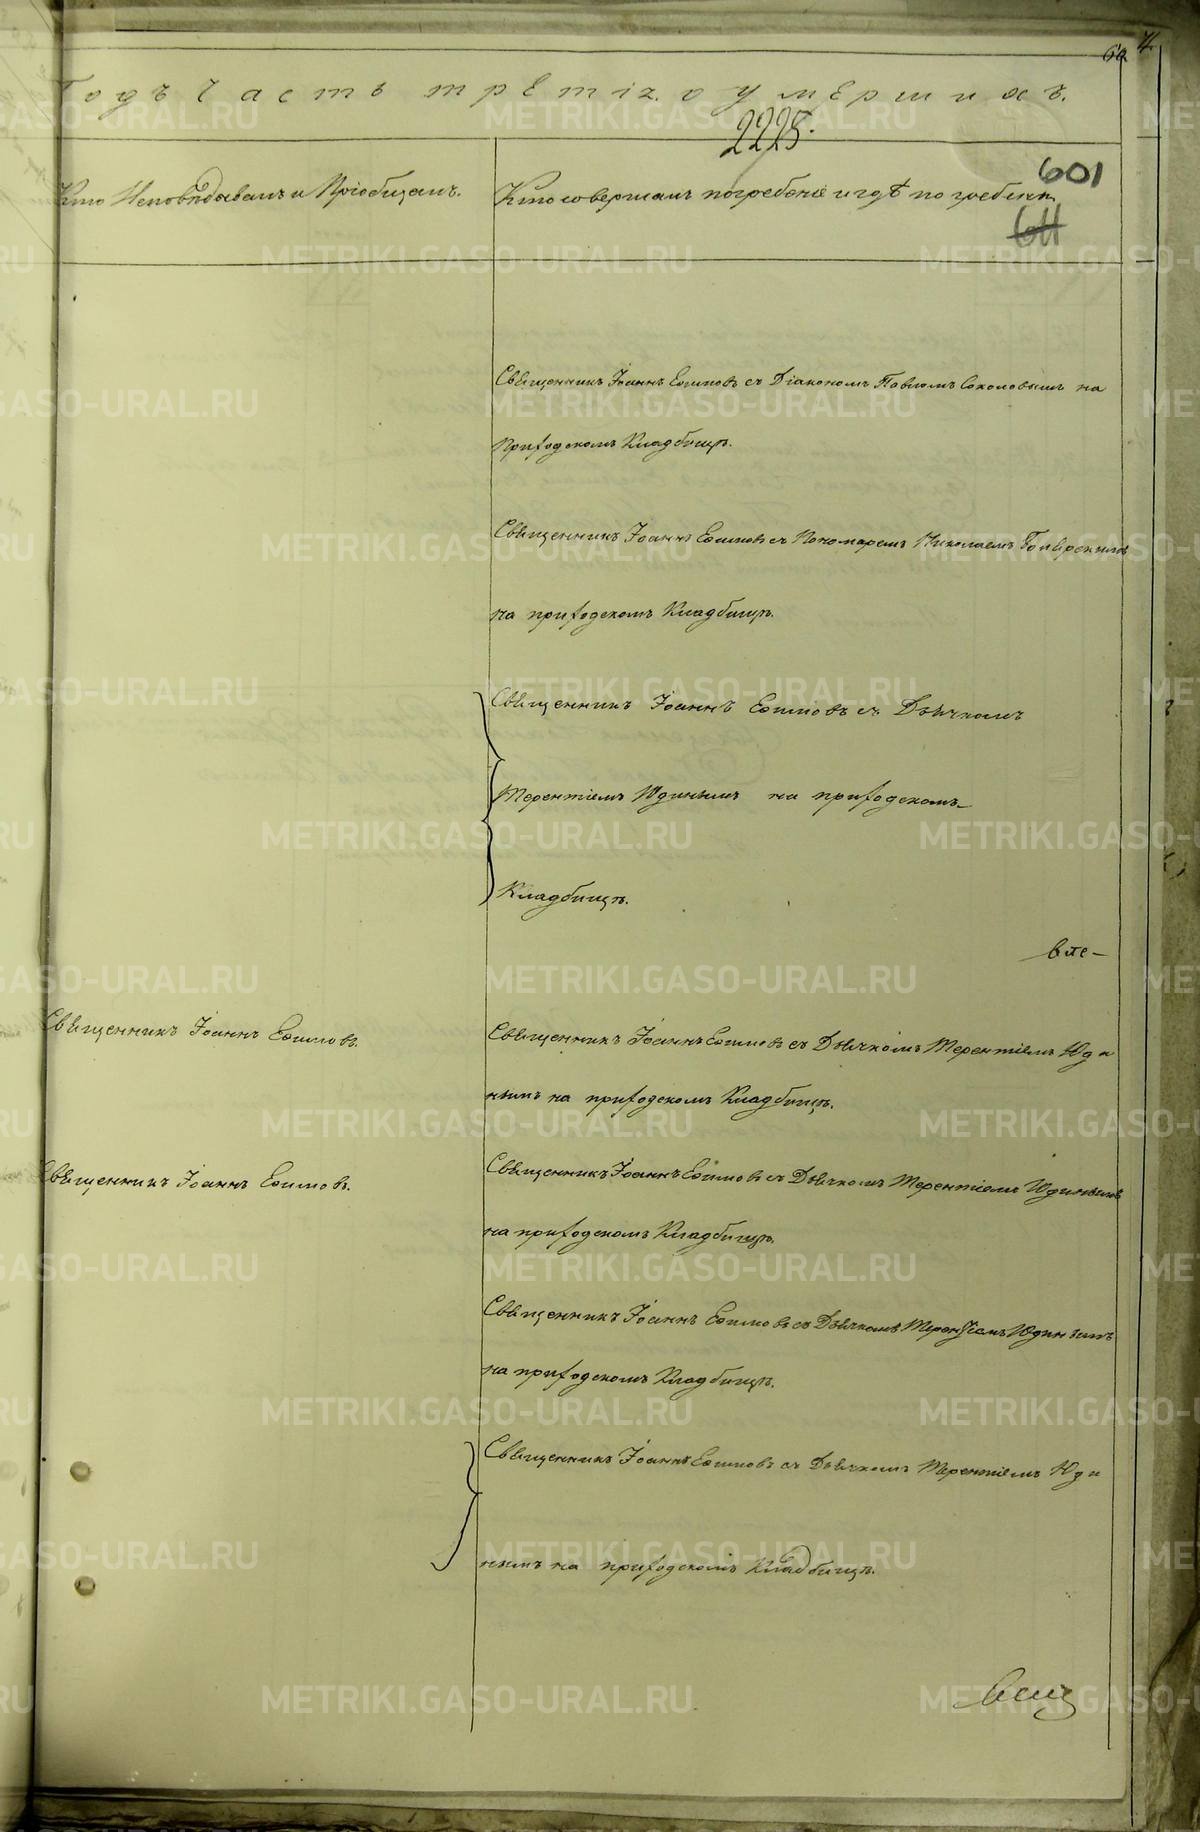 Годъ Часть третія о умершихъ.
2225.
601
611
Кто Исповѣдывалъ и Пріобщалъ.
Кто совершалъ погребеніе и гдѣ погребены
Священникъ Іоаннъ Ефимовъ съ Діакономъ Павломъ Соколовымъ на
Приходскомъ Кладбищѣ.
Священникъ Іоаннъ Ефимовъ съ Пономаремъ Николаемъ
на приходскомъ Кладбищѣ.
Священникъ Іоаннъ Ефимовъ съ Дьячкомъ
Терентіемъ Юдинымъ на приходскомъ
Кладбищѣ.
Священникъ Іоаннъ Ефимовъ.
Священникъ Іоаннъ Ефимовъ съ Дьячкомъ Терентіемъ Юди
нымъ на приходскомъ Кладбищѣ.
Священникъ Іоаннъ Ефимовъ.
Священникъ Іоаннъ Ефимовъ съ Дьячкомъ Терентіемъ Юдинымъ
на приходскомъ Кладбищѣ.
Священникъ Іоаннъ Ефимовъ съ Дьячкомъ Терентіемъ Юдинымъ
на приходскомъ Кладбищѣ.
Священникъ Іоаннъ Ефимовъ съ Дьячкомъ Терентіемъ Юди
нымъ на приходскомъ Кладбищѣ.
METRIKI.GASO-URAL.RU